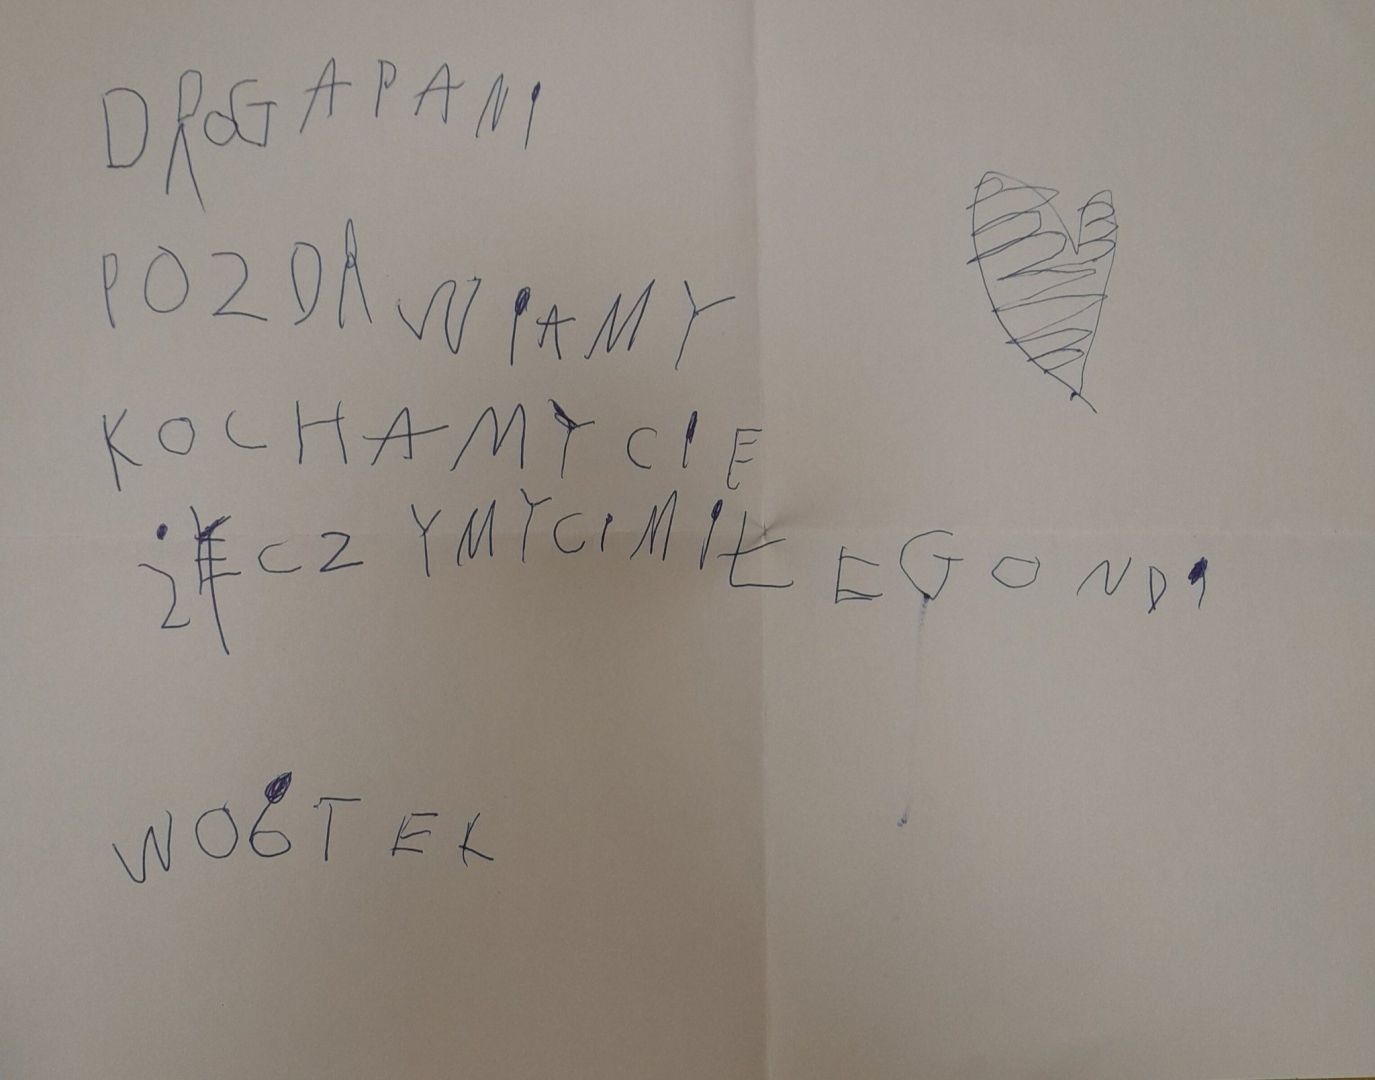 DROGAPANI
POZDRWIAMY
KOCHAMY CIE
ŻECZYMYCIMIŁEGONDI
WOÓTEK